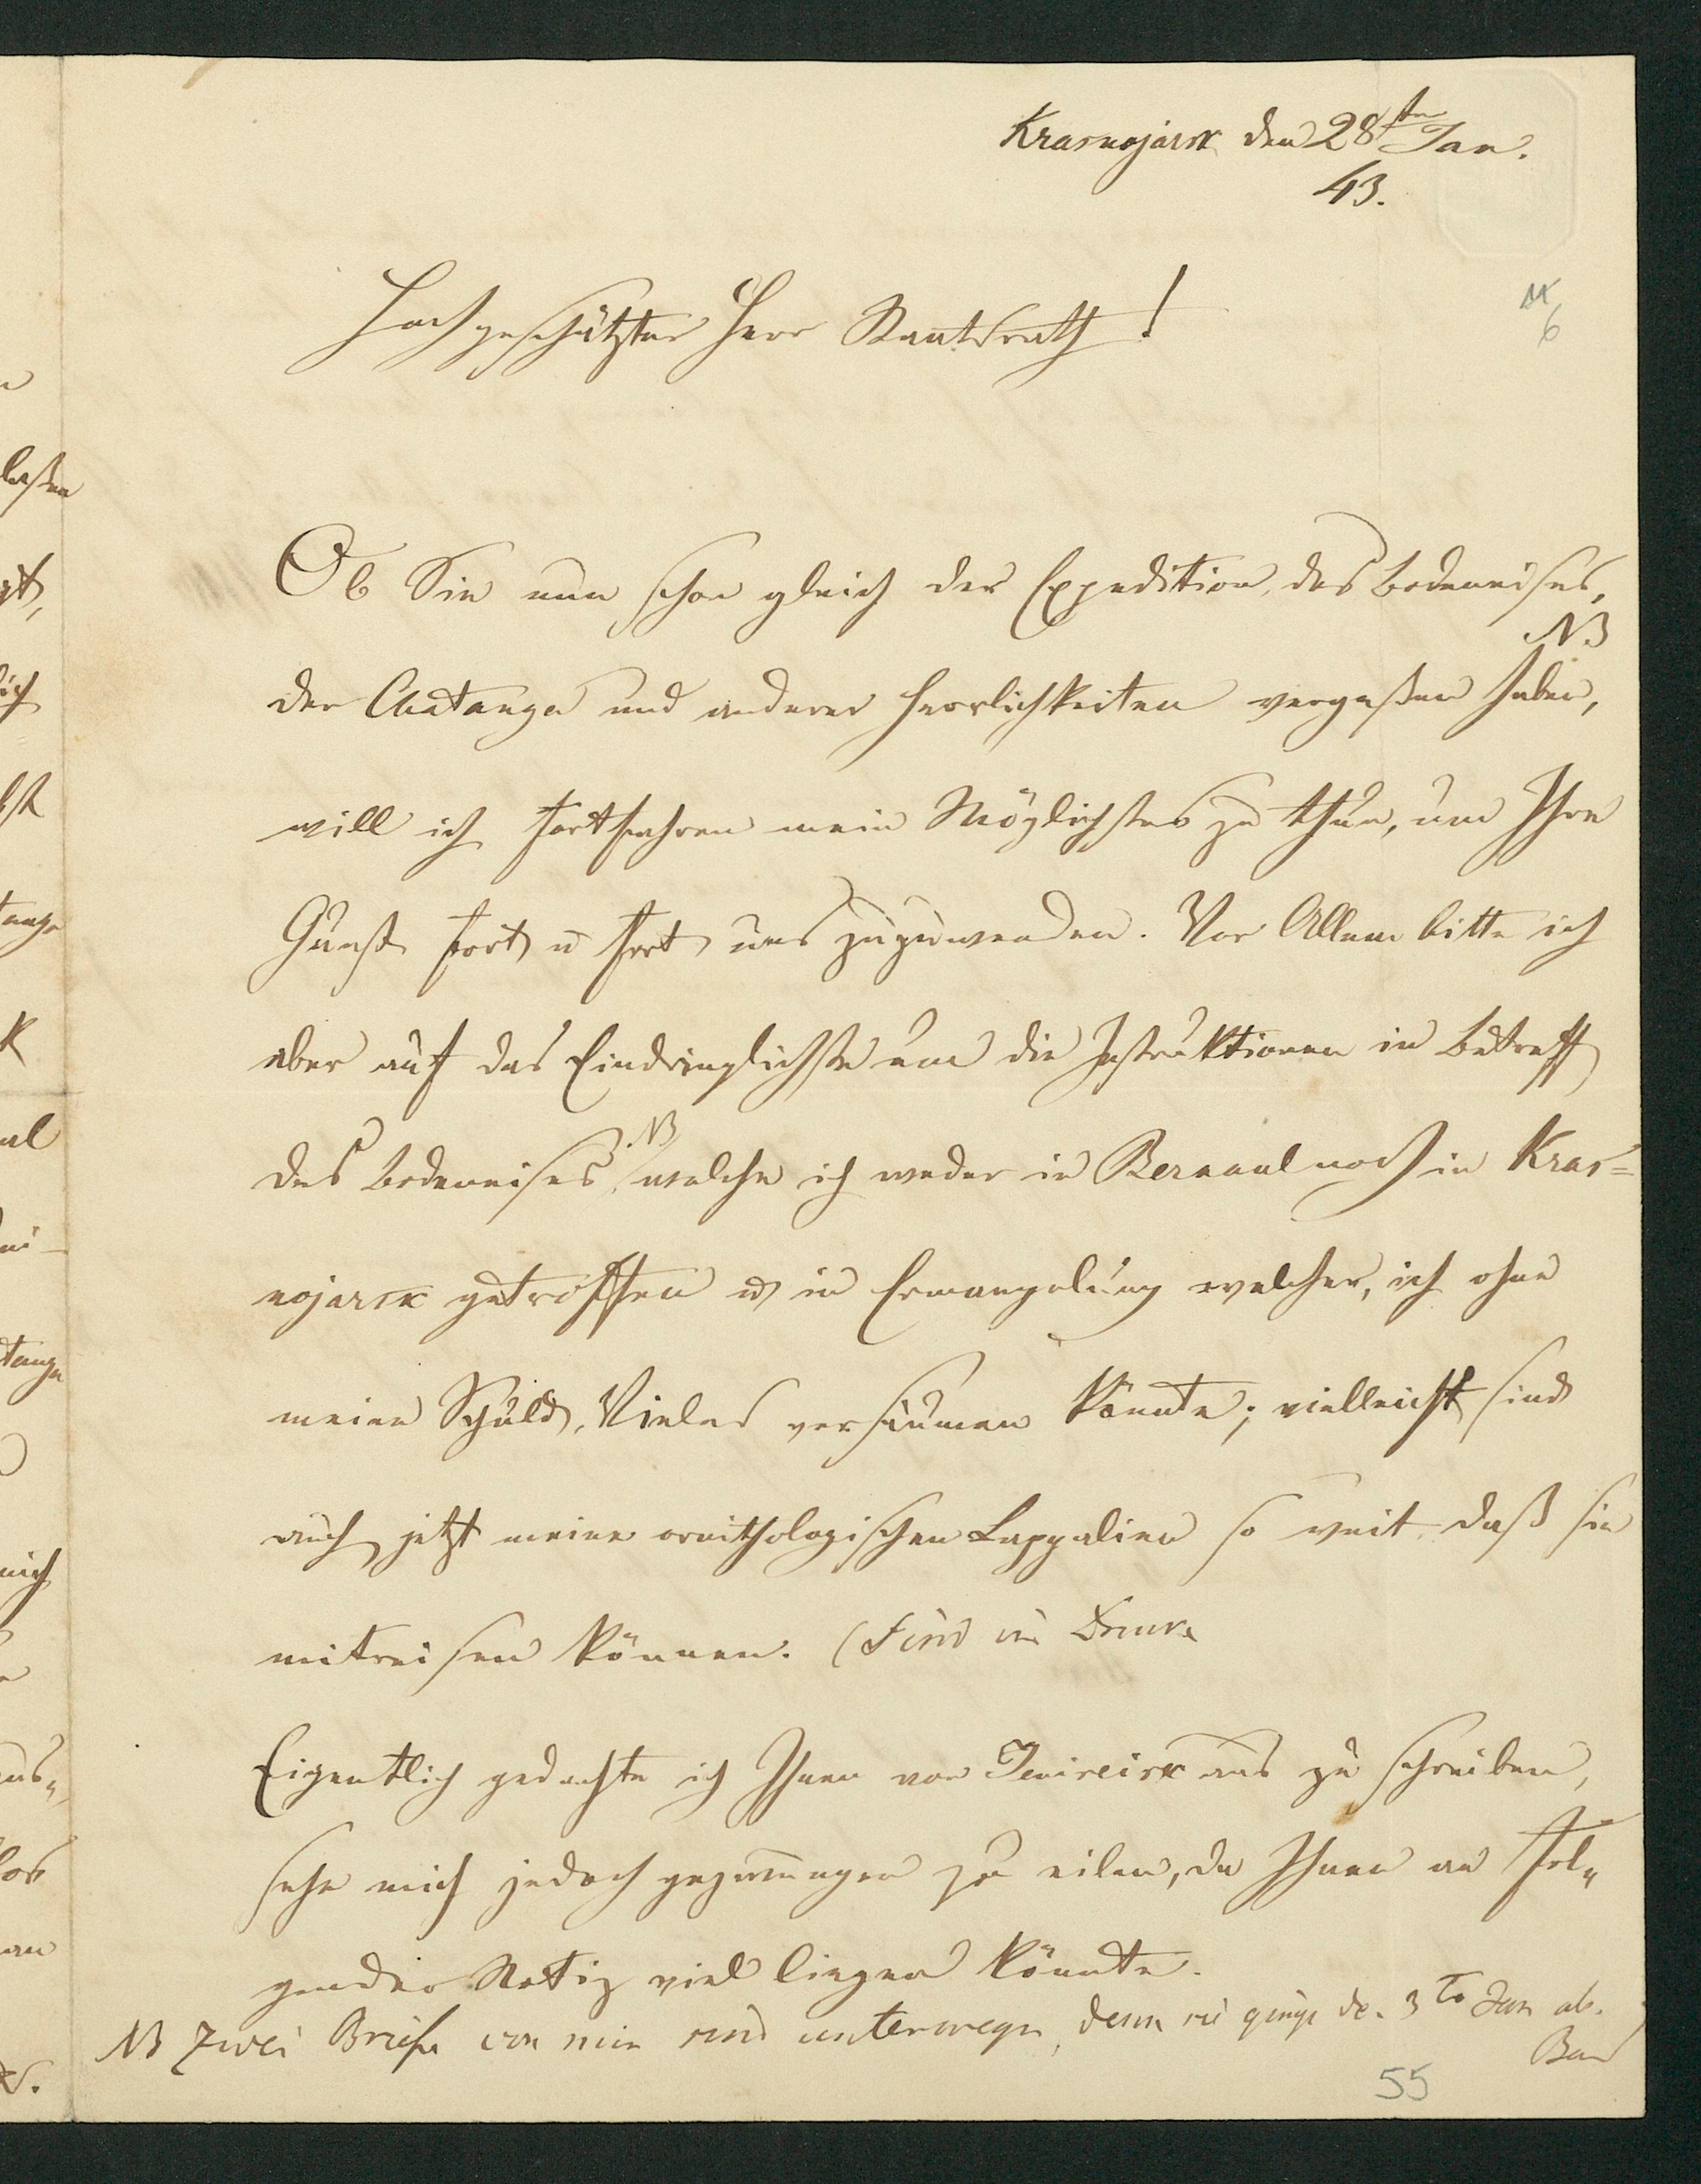 Krasnojarsk den 28sten Jan.
43.
Hochgeschätzter Herr Staatsrath!
6
Ob Sie nun schon gleich der Expedition, des Bodeneises,
NB
der Chatanga und anderer Herrlichkeiten vergaßen haben,
will ich fortfahren mein Möglichstes zu thun, um Ihre
Gunst fort u fort uns zuzuwenden. Vor Allem bitte ich
aber auf das Eindringlichste um die Instruktionen in Betreff
NB
des Bodeneises, welche ich weder in Barnaul noch in Kras=
nojarsk getroffen u in Ermangelung welcher, ich ohne
meine Schuld, Vieles versäumen könnte; vielleicht sind
auch jetzt meine ornithologischen Lappalien so weit daß sie
mitreisen können. (Sind im Drucke
Eigentlich gedachte ich Ihnen von Jeniseisk aus zu schreiben,
sehe mich jedoch gezwungen zu eilen, da Ihnen an fol„
gender Notiz viel liegen könnte.
NB Zwei Briefe von mir sind unterwegs, denn sie gingen d. 3ten Jan ab.
Baer
55
lassen
ich
tanga
K
al
tanga
mich
los
an